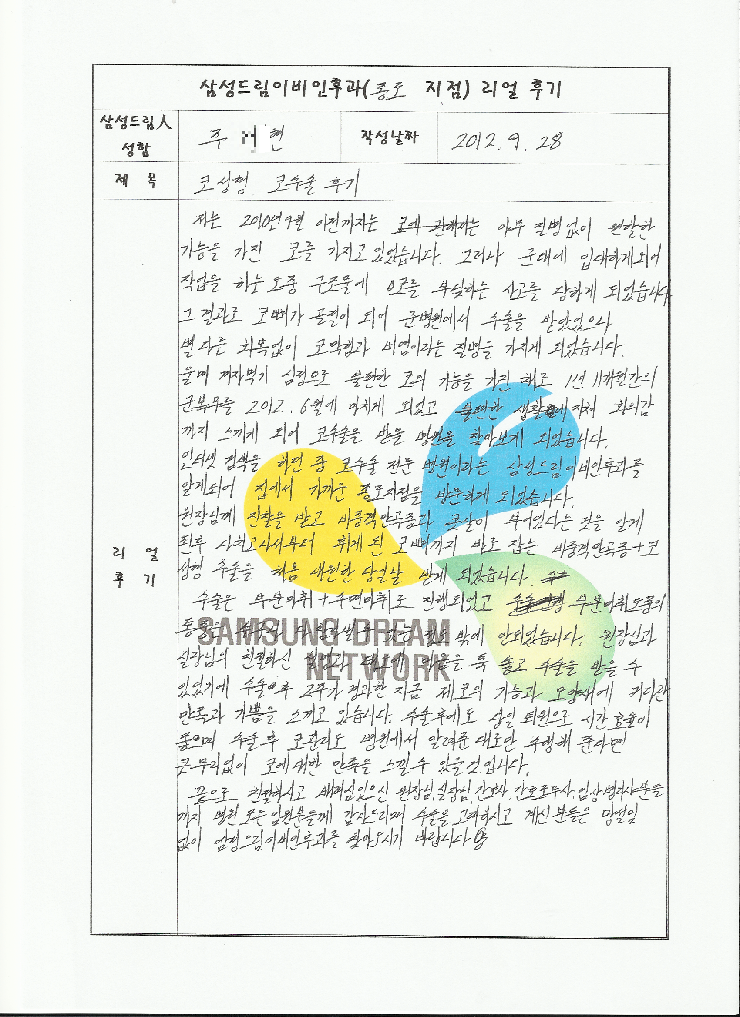 삼성드림이비인후과(종로 지점) 리얼 후기
삼성드림人
성함
주 현
작성날짜
2012. 9. 28
제 목
코성형 코수술 후기
리 얼
후 기
저는 2010년 9월 이전까지는 아무 질병없이 원활한
기능을 가진 코를 가지고 있었습니다. 그러나 군대에 입대하게되어
작업을 하는 도중 구조물에 코를 부딪하는 사고를 당하게 되었습니다
그 결과로 코뼈가 골절이 되어 군병원에서 수술을 받았었으나
별 다른 회복없이 코막힘과 비염이라는 질병을 가지게 되었습니다.
울며 겨자먹기 심정으로 불편한 코의 기능을 가진 채로 1년 11개월간의
군복무를 2012. 6월에 마치게 되었고 불편한 회의감
까지 느끼게 되어 코수술을 받을 병원을 찾아보게 되었습니다.
인터넷 검색을 하던 중 코수술 전문 병원이라는 삼성드림이비인후과를
알게되어 집에서 가까운 종로지점을 방문하게 되었습니다.
원장님께 진찰을 받고 비중격만곡증과 콧살이 부어있다는 것을 알게
된후 휘게 된 코뼈까지 바로 잡는 비중격만곡증+코
성형 수술을 받게 되었습니다.
수술은 부분마취+수면마취로 진행되었고 부분마취도중의
통증은 밖에 안되었습니다. 원장님과
실장님의 친절하신 마음을 푹 놓고 수술을 받을 수
있었기에 수술이후 2주가 경과한 지금 제 코의 기능과 모양새에 커다란
만족과 기쁨을 느끼고 있습니다. 수술후에도 당일 퇴원으로 시간 효율이
좋으며 수술 후 코관리도 병원에서 알려준 대로만 수행해 준다면
큰 무리없이 코에 대한 만족을 느낄 수 있을것 입니다.
끝으로 친절하시고 배려심있으신 원장님, 실장님, 간호사, 간호조무사, 임상병리사분들
까지 병원 모든 임원분들께 감사드리며 수술을 고려하시고 계신 분들은 망설임
없이 삼성드림이비인후과를 찾아오시기 바랍니다
SAMSUNG DREAM
NETWORK